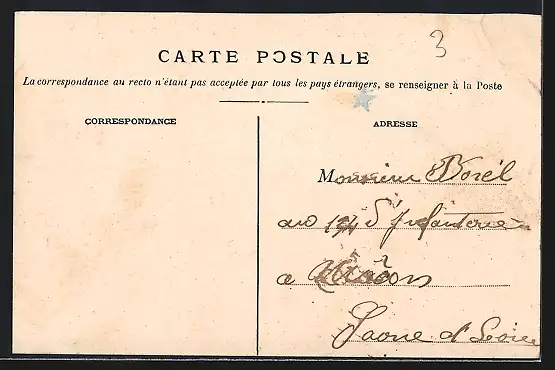 3
CARTE POSTALE
La correspondance au recto n'étant pas acceptée par tous les pays étrangers, se renseigner à la Poste
CORRESPONDANCE
ADRESSE
Monsieur Borél
au 134 d'Infanterie
a Macon
Saone et Loire